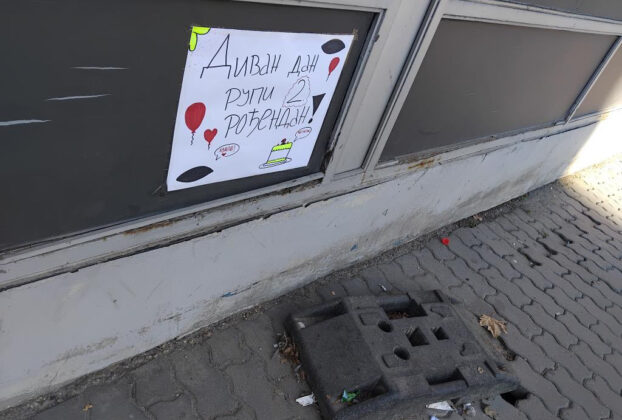 Диван дан
рупи 2
рођендан